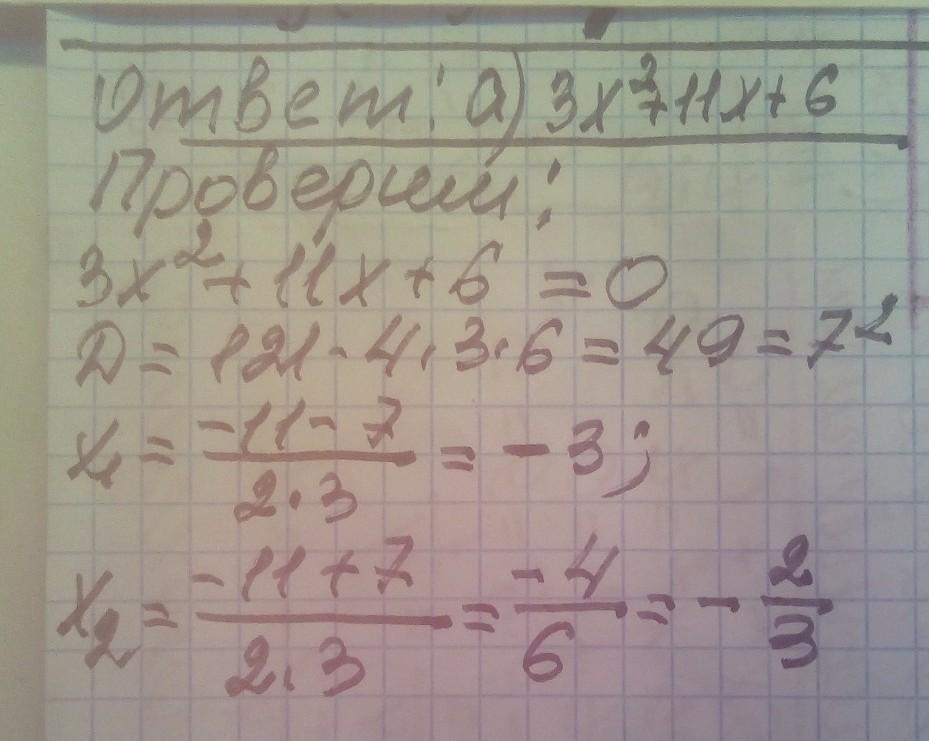 Ответ: а) 3x²+11x+6
Проверим:
3x²+11x+6=0
D=121-4·3·6=49=7²
x₁=(-11-7)/(2·3)=-3;
x₂=(-11+7)/(2·3)=-4/6=-2/3